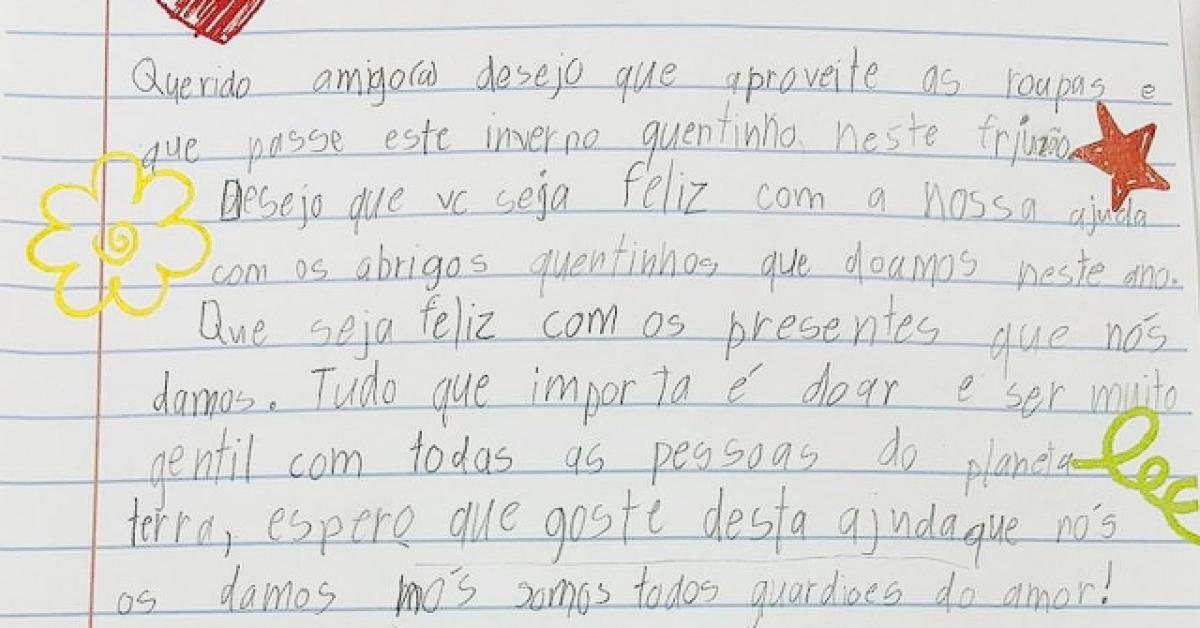 Querido amigo(a) desejo que aproveite as roupas e
que passe este inverno quentinho, neste friuzão.
Desejo que vc seja feliz com a nossa ajuda
com os abrigos quentinhos que doamos neste ano.
Que seja feliz com os presentes que nós
damos. Tudo que importa é doar e ser muito
gentil com todas as pessoas do planeta
terra, espero que goste desta ajuda que nós
os damos nós somos todos guardioes do amor!